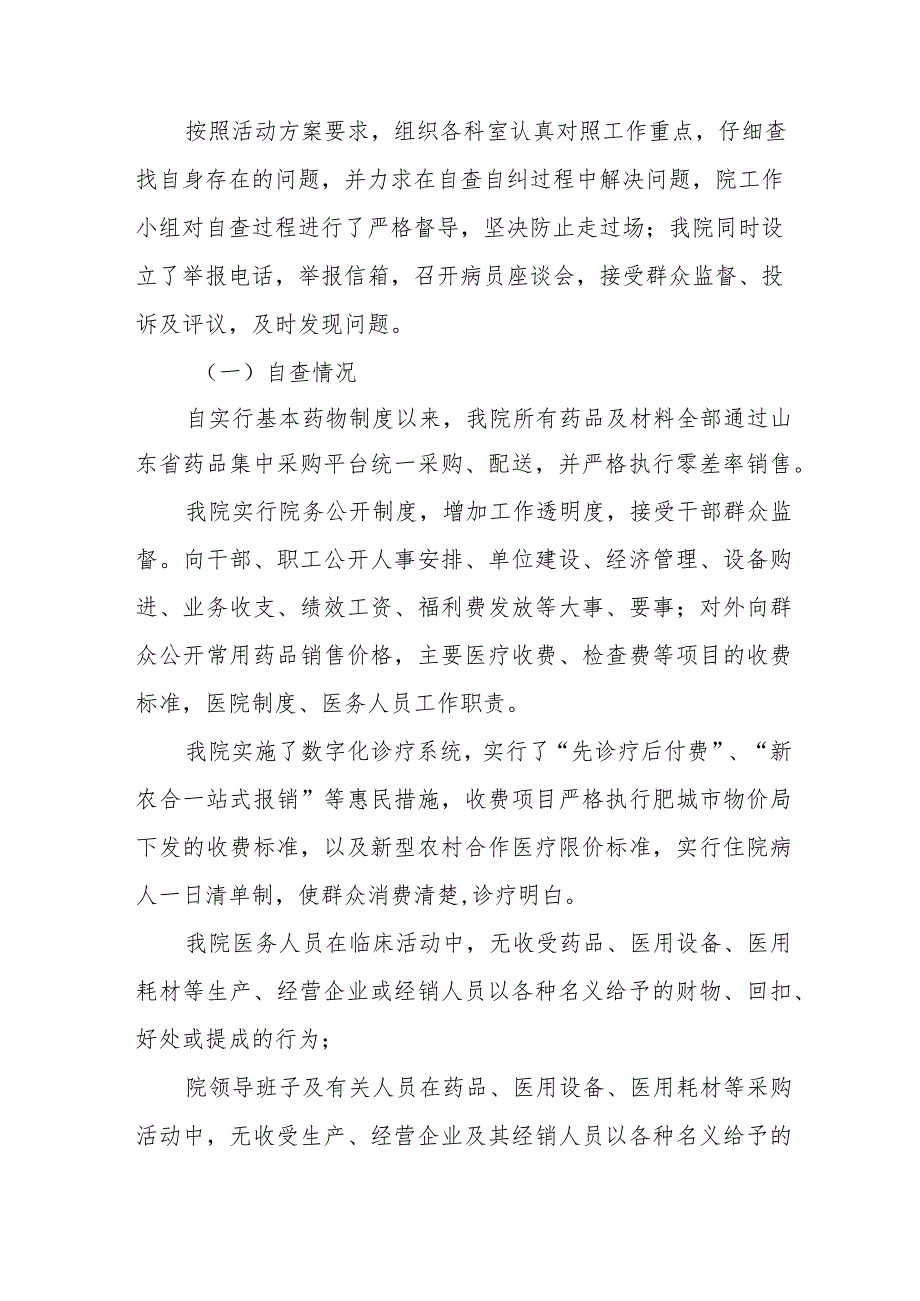 按照活动方案要求，组织各科室认真对照工作重点，仔细查
找自身存在的问题，并力求在自查自纠过程中解决问题，院工作
小组对自查过程进行了严格督导，坚决防止走过场；我院同时设
立了举报电话，举报信箱，召开病员座谈会，接受群众监督、投
诉及评议，及时发现问题。
（一）自查情况
自实行基本药物制度以来，我院所有药品及材料全部通过山
东省药品集中采购平台统一采购、配送，并严格执行零差率销售。
我院实行院务公开制度，增加工作透明度，接受干部群众监
督。向干部、职工公开人事安排、单位建设、经济管理、设备购
进、业务收支、绩效工资、福利费发放等大事、要事；对外向群
众公开常用药品销售价格，主要医疗收费、检查费等项目的收费
标准，医院制度、医务人员工作职责。
我院实施了数字化诊疗系统，实行了“先诊疗后付费”、“新
农合一站式报销”等惠民措施，收费项目严格执行肥城市物价局
下发的收费标准，以及新型农村合作医疗限价标准，实行住院病
人一日清单制，使群众消费清楚,诊疗明白。
我院医务人员在临床活动中，无收受药品、医用设备、医用
耗材等生产、经营企业或经销人员以各种名义给予的财物、回扣、
好处或提成的行为；
院领导班子及有关人员在药品、医用设备、医用耗材等采购
活动中，无收受生产、经营企业及其经销人员以各种名义给予的